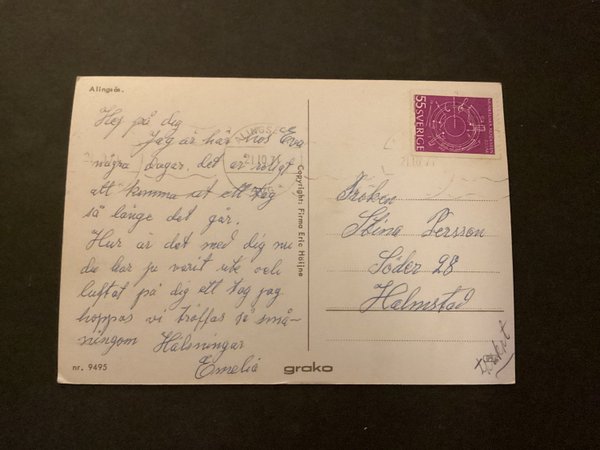 Alingsås.
Hej på dig
Jag är här hos Eva
några dagar, det är roligt
att komma ut ett tag
så länge det går.
Hur är det med dig nu
du har ju varit ute och
luftat på dig ett tag jag
hoppas vi träffas så små-
ningom Hälsningar
Emelia
nr. 9495
Copyright: Firma Eric Höijne
grako
ALINGSÅS
21.10.71
55 SVERIGE
Fröken
Stina Persson
Söder 28
Halmstad